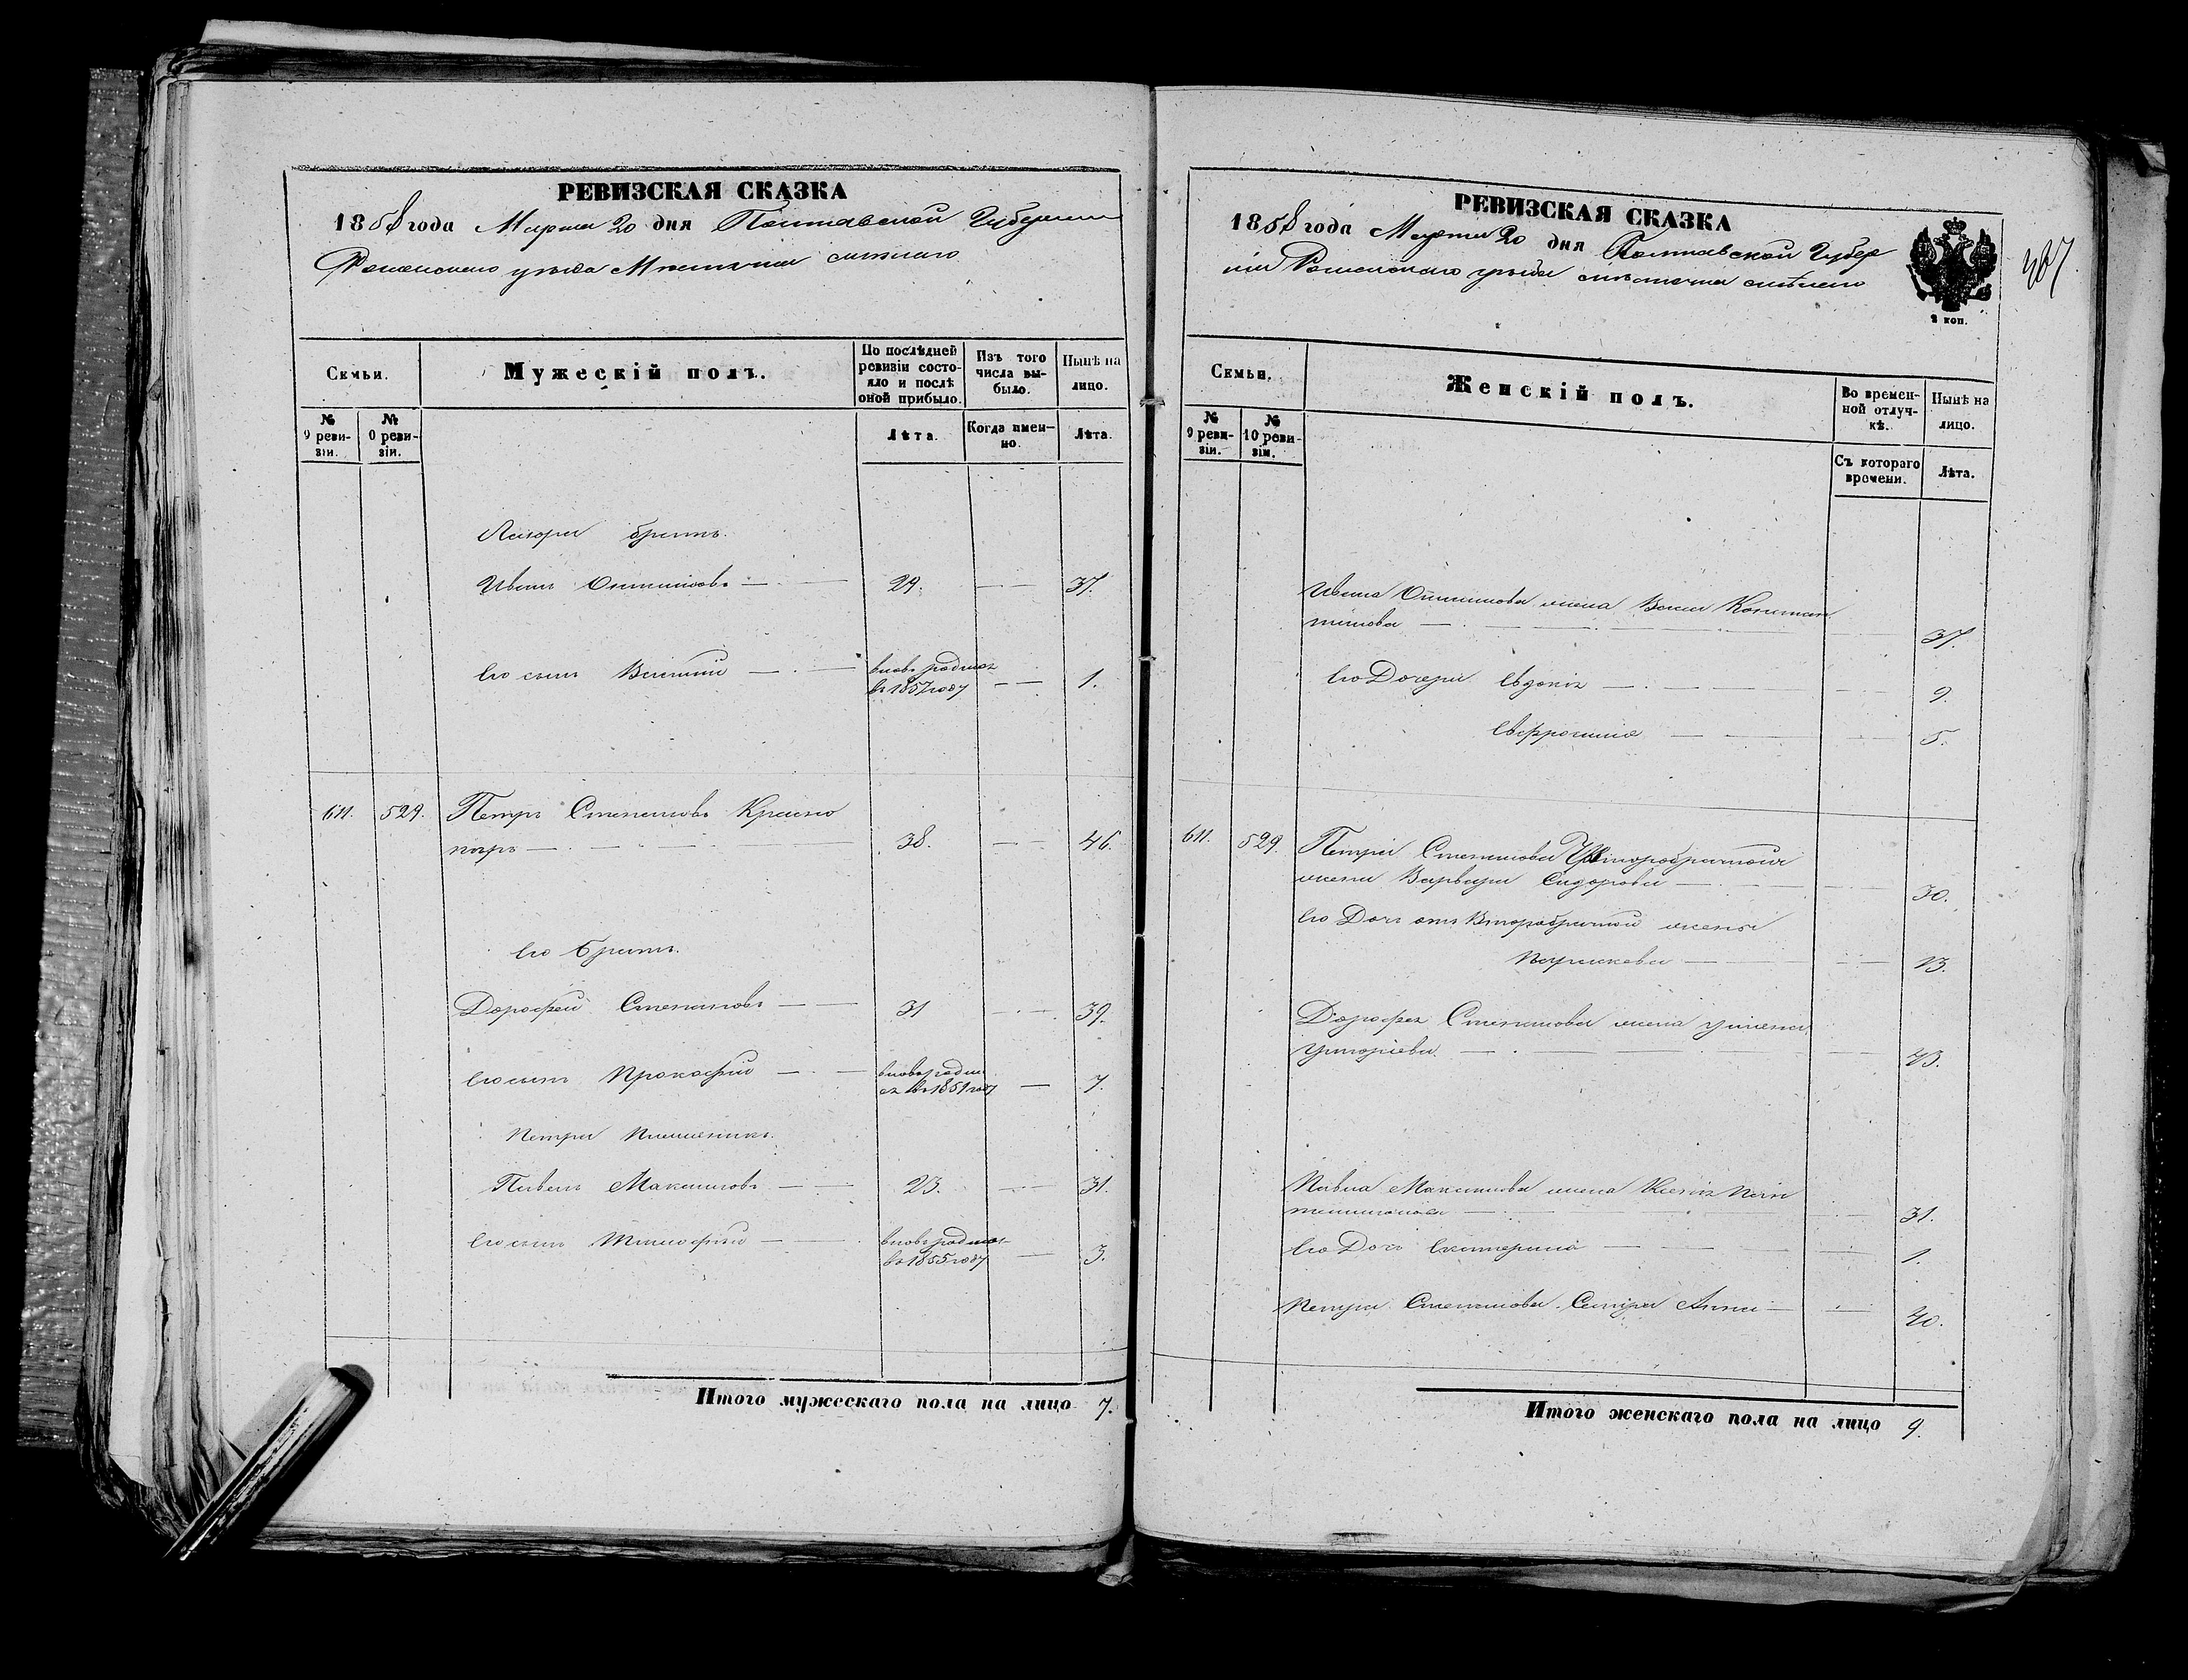 РЕВИЗСКАЯ СКАЗКА
1858 года Марта 20 дня Полтавской Губернии
Роменского уѣзда Мѣстечка Смѣлаго
Семьи.
Мужескій полъ.
По послѣдней ревизіи состояло и послѣ оной прибыло.
Изъ того числа выбыло.
Нынѣ на лицо.
№ 9 ревизіи.
№ 0 ревизіи.
Лѣта.
Когда именно.
Лѣта.
братъ.
Иванъ 29. 37.
Его сынъ Василій вновь родился въ 1857 году 1.
611. 529. Петръ Степановъ Красно
38. 46.
Его Братъ.
Дорофей Степановъ 31 39.
Его сынъ Прокофій вновь родил
ся въ 1851 году 7.
Петра племяникъ.
Павелъ Максимовъ 23. 31.
Его сынъ Тимофей вновь родился
въ 1855 году 3.
Итого мужескаго пола на лицо 7.
РЕВИЗСКАЯ СКАЗКА
1858 года Марта 20 дня Полтавской Губер
ніи Роменскаго уѣзда мѣстечка Смѣлаго
2 коп.
Семьи.
Женскій полъ.
Во временной отлучкѣ.
Нынѣ на лицо.
№ 9 ревизіи.
№ 10 ревизіи.
Съ котораго времени.
Лѣта.
Ивана жена Констан
тинова 37.
Его Дочери Евдокія 9.
Евфросинія 5.
611. 529. Петра Степанова Второбрачная
жена Варвара Сидорова 30.
Его Дочь отъ Второбрачной жены
Параскева 13.
Дорофея Степанова жена
Григоріева
Павла Максимова жена
31.
Его Дочь Екатерина 1.
Петра Степанова Сестра Анна 40.
Итого женскаго пола на лицо 9.